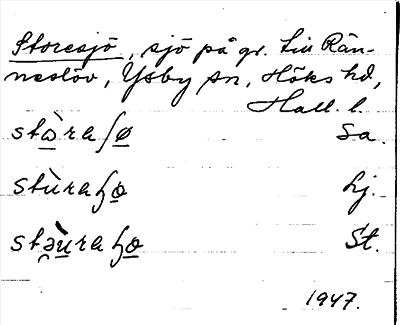 Storesjö, sjö på gr. till Rän-
neslöv, Ysby sn, Höks hd,
Hall. l.
stɷ̀ra ʃø Sa.
stùra ɧø Lj.
stəùra ɧø St.
1947.